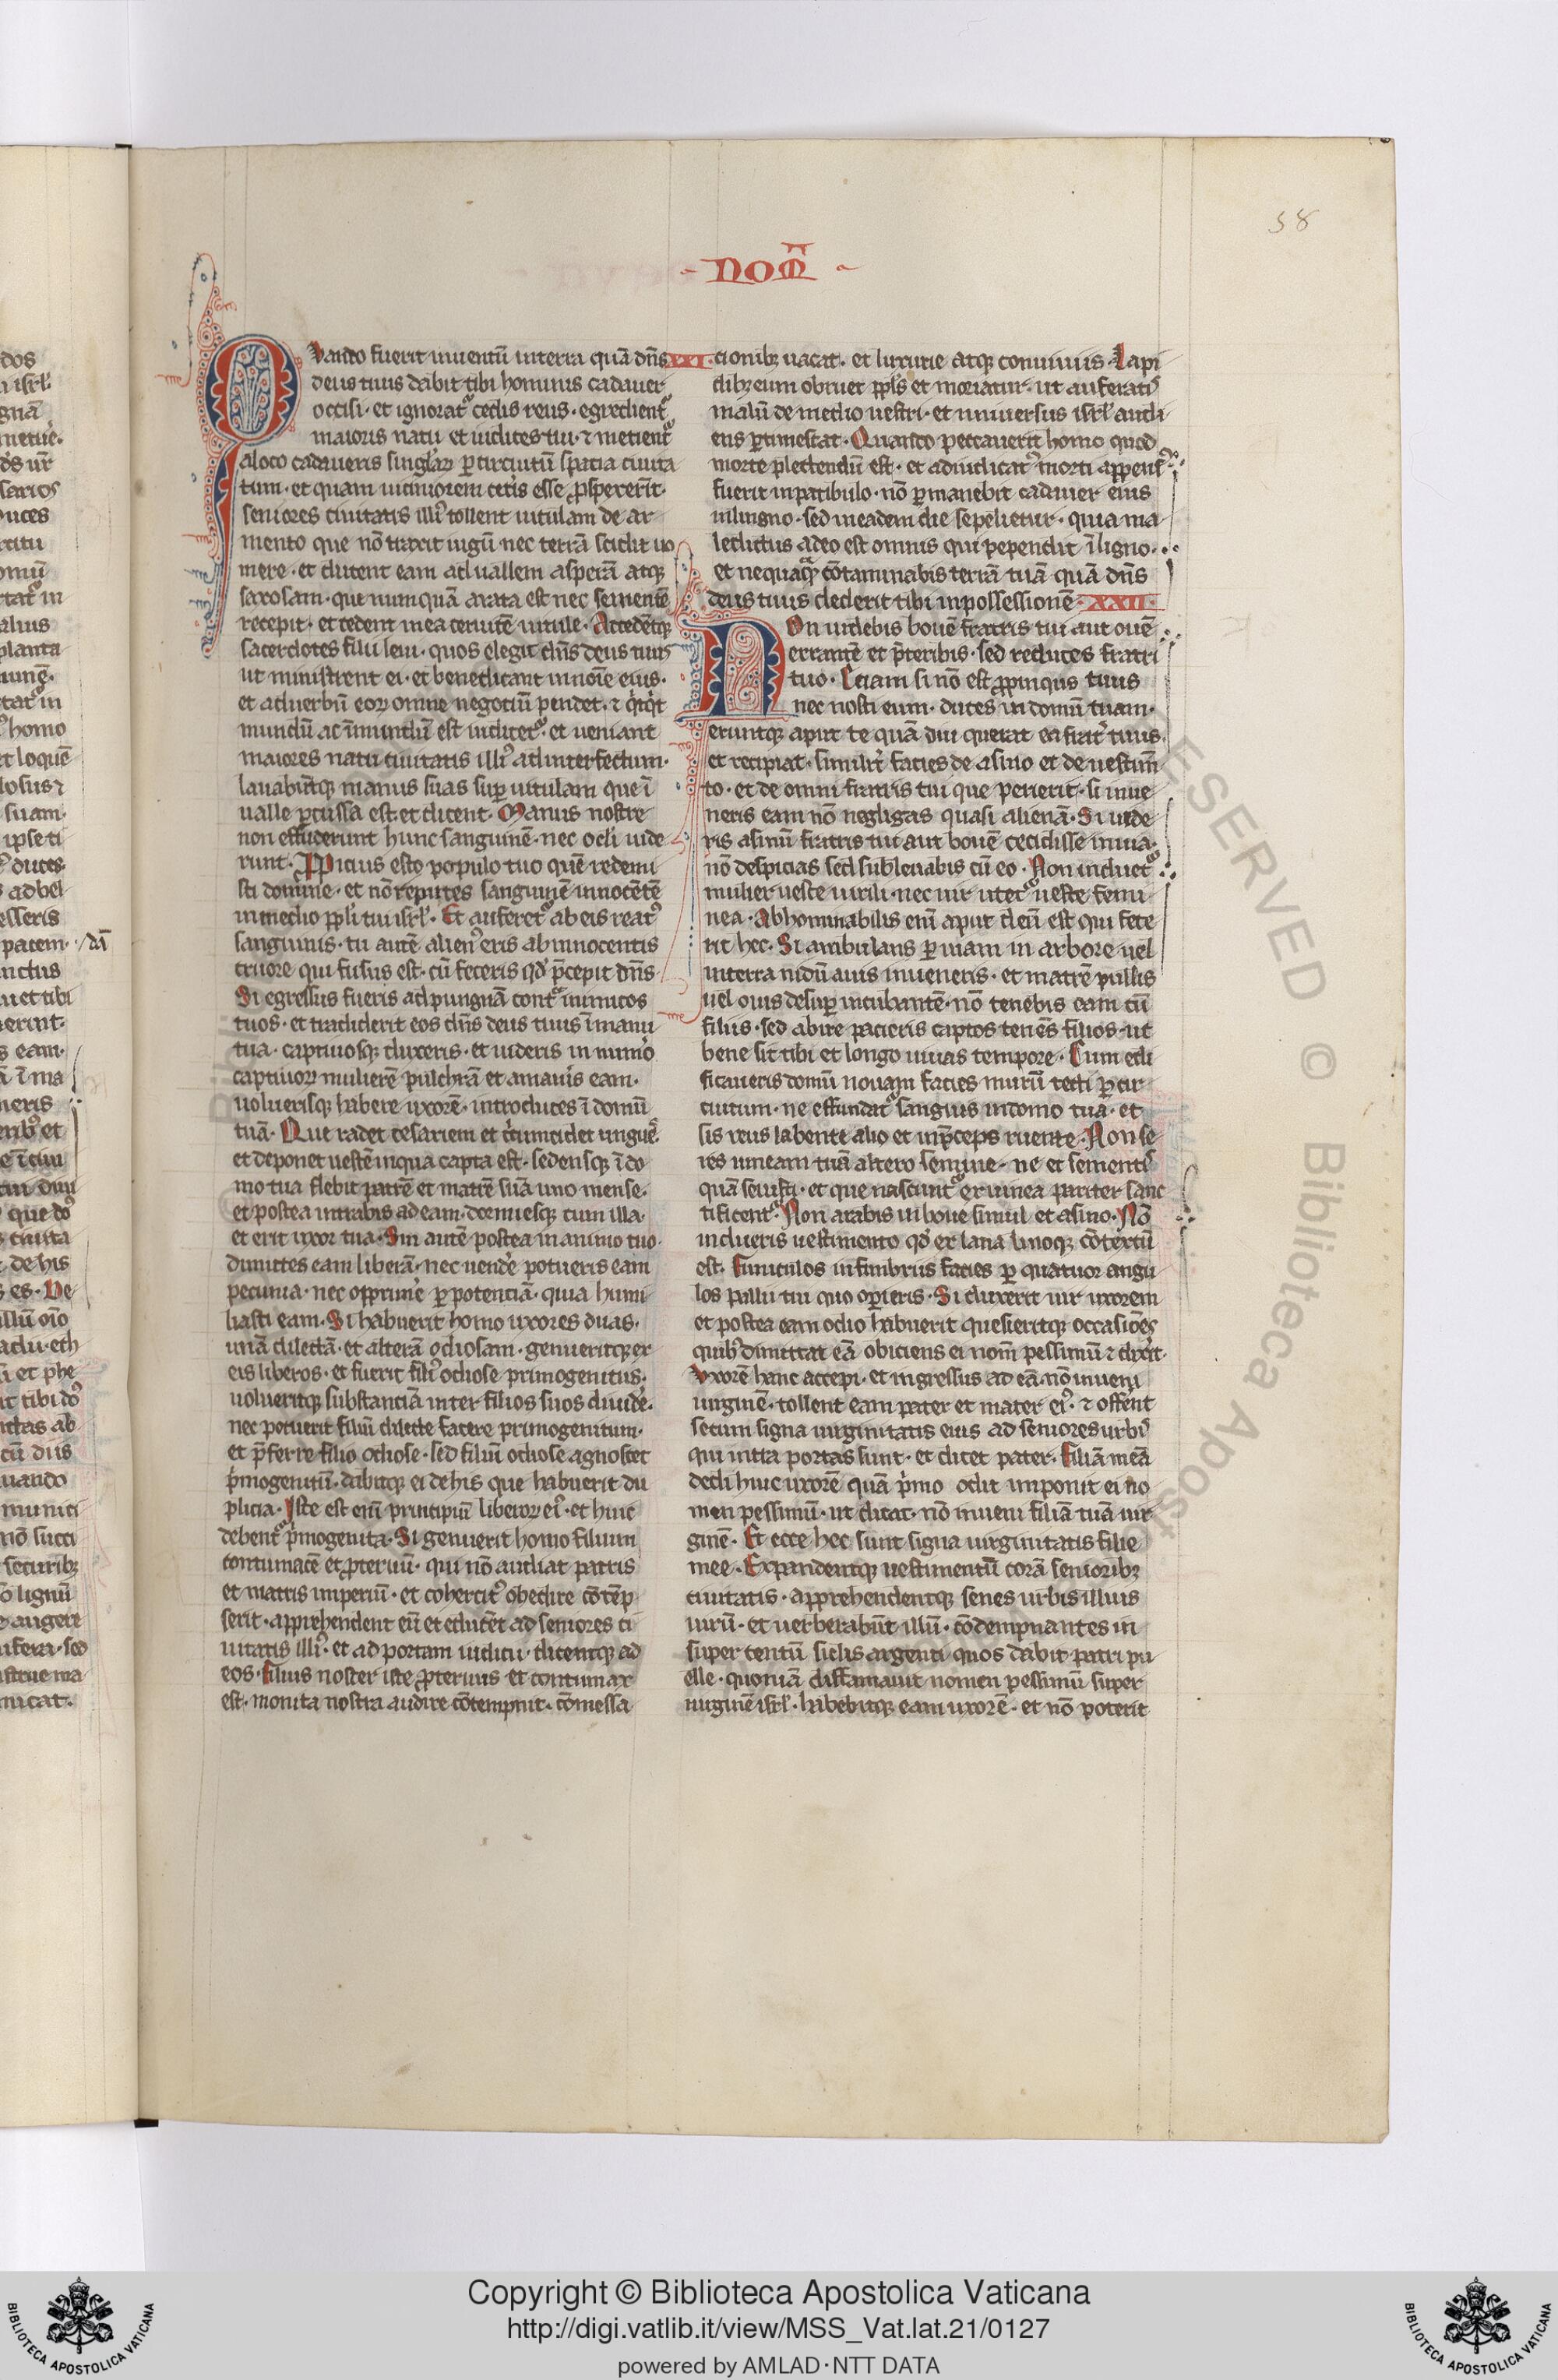 58
- NOM̄ -
Quando fuerit inuentū interra quā dn̄s XXI.
deus tuus dabit tibi hominis cadauer
occisi · et ignoratᷣ cedis reus · egredientᷣ
maioris natu et iudices tui · ⁊ metientᷣ
a loco cadaueris singl'aꝝ ꝑ circuitū spatia ciuita
tum · et quam uiciniorem cet̓is esse ꝓspexerīt ·
seniores ciuitatis illiꝰ tollent uitulam de ar
mento que nō traxit iugū nec terrā scidit uo
mere · et ducent eam ad uallem asperā atqꝫ
saxosam · que numquā arata est nec sementē
recepit · et cedent in ea ceruicē uitule · Accedētqꝫ
sacerdotes filii leui · quos elegit dn̄s deus tuus
ut ministrent ei · et benedicant in noīe eius ·
et ad uerbū eoꝝ omne negotiū pendet · ⁊ q̇cq̇d
mundū ac īmundū est iudicetᷣ · et ueniant
maiores natu ciuitatis illiꝰ ad interfectum ·
lauabūtqꝫ manus suas suꝑ uitulam que ī
ualle ꝑcussa est et dicent · Manus nostre
non effuderunt hunc sanguinē · nec ocl'i uide
runt · Ppicius esto populo tuo quē redemi
sti domine · et nō reputes sanguinē innocētē
in medio ppl'i tui isrl' · Et auferetᷣ ab eis reatꝰ
sanguinis · tu autē alienꝰ eris ab innocentis
cruore qui fusus est · cū feceris qd̓ p̄cepit dn̄s ·
Si egressus fueris ad pungnā contᷓ inimicos
tuos · et tradiderit eos dn̄s deus tuus ī manu
tua · captiuosqꝫ duxeris · et uideris in num̓o
captiuoꝝ mulierē pulchrā et amau̓is eam ·
uoluerisqꝫ habere uxorē · introduces ī domū
tuā · Que radet cesariem et c̓cumcidet unguē ·
et deponet uestē in qua capta est · sedensqꝫ ī do
mo tua flebit patrē et matrē suā uno mense ·
et postea intrabis ad eam · dormiesqꝫ cum illa ·
et erit uxor tua · Sin autē postea in animo tuo ·
dimittes eam liberā · nec uend̓e potueris eam
pecunia · nec opprim̓e ꝑ potenciā · quia humi
liasti eam · Si habuerit homo uxores duas ·
unā dilectā · et alterā odiosam · genueritqꝫ ex
eis liberos · et fuerit filiꝰ odiose primogenitus ·
uolueritqꝫ substanciā inter filios suos diuid̓e ·
nec potuerit filiū dilecte facere primogenitum ·
et p̄ferre filio odiose · sed filiū odiose agnoscet
p̓mogenitū · dabitqꝫ ei de his que habuerit du
plicia · Iste est enī principiū liberoꝝ eiꝰ · et huic
debentᷣ p̓mogenita · Si genuerit homo filium
contumacē et ꝓteruū · qui nō audiat patris
et matris imperiū · et cohercitꝰ obedire cōtēp
serit · apprehendent eū et educēt ad seniores ci
uitatis illiꝰ · et ad portam iudicii · dicentqꝫ ad
eos · Filius noster iste ꝓteruus et contumax
est · monita nostra audire cōtempnit · cōmessa
cionibꝫ uacat · et luxurie atqꝫ conuiuiis · Lapi
dibꝫ eum obruet ppl's et morietur · ut auferatis
malū de medio uestri · et uniuersus isrl' audi
ens ꝑtimescat · Quando peccauerit homo quod
morte plectendū est · et adiudicatꝰ morti appensꝰ
fuerit in patibulo · nō ꝑmanebit cadauer eius
in lingno · sed in eadem die sepelietur · quia ma
ledictus a deo est omnis qui pependit ī ligno ·
et nequaqᷓꝫ cōtaminabis terrā tuā quā dn̄s
deus tuus dederit tibi in possessionē · XXII ·
Non uidebis bouē fratris tui aut ouē
errantē et p̄teribis · sed reduces fratri
tuo · Eciam si nō est ꝓpinqus tuus
nec nosti eum · duces in domū tuam ·
eruntqꝫ aput te quā diu querat ea frat̓ tuus ·
et recipiat · similit̓ facies de asino et de uestimē
to · et de omni fratris tui que perierit · si inue
neris eam nō negligas quasi alienā · Si uide
ris asinū fratris tui aut bouē cecidisse in uia ·
nō despicias sed subleuabis cū eo · Non induetᷣ
mulier ueste uirili · nec uir utetᷣ ueste femi
nea · Abhominabilis enī aput deū est qui fece
rit hec · Si ambulans ꝑ uiam in arbore uel
in terra nidū auis inueneris · et matrē pullis
uel ouis desuꝑ incubantē · nō tenebis eam cū
filiis · sed abire pacieris captos tenēs filios · ut
bene sit tibi et longo uiuas tempore · Cum edi
ficaueris domū nouam facies murū tecti ꝑ cir
cuitum · ne effundatᷣ sanguis in domo tua · et
sis reus labente alio et in p̄ceps ruente · Non se
res uineam tuā altero semine · ne et sementis
quā seuisti · et que nascuntᷣ ex uinea pariter sanc
tificentᷣ · Non arabis in boue simul et asino · Nō
indueris uestimento qd̓ ex lana linoqꝫ cōtextū
est · Funiculos in fimbriis facies ꝑ quatuor angu
los pallii tui quo oꝑieris · Si duxerit uir uxorem
et postea eam odio habuerit quesieritqꝫ occasiōes
quibꝰ dimittat eā obiciens ei nom̄ pessimū ⁊ dix̓it ·
Uxorē hanc accepi · et ingressus ad eā nō inueni
uirginē · tollent eam pater et mater eiꝰ · ⁊ offerēt
secum signa uirginitatis eius ad seniores urbis
qui intra portas sunt · et dicet pater · Filiā meā
dedi huic uxorē quā p̓mo odit imponit ei no
men pessimū · ut dicat · nō inueni filiā tuā uir
ginē · Et ecce hec sunt signa uirginitatis filie
mee · Expandentqꝫ uestimentū corā senioribꝫ
ciuitatis · apprehendentqꝫ senes urbis illius
uirū · et uerberabūt illū · cōdempnantes in
super centū siclis argenti quos dabit patri pu
elle · quoniā diffamauit nomen pessimū super
uirginē isrl' · habebitqꝫ eam uxorē · et nō poterit
Copyright © Biblioteca Apostolica Vaticana
http://digi.vatlib.it/view/MSS_Vat.lat.21/0127
powered by AMLAD · NTT DATA
BIBLIOTECA APOSTOLICA VATICANA
BIBLIOTECA APOSTOLICA VATICANA